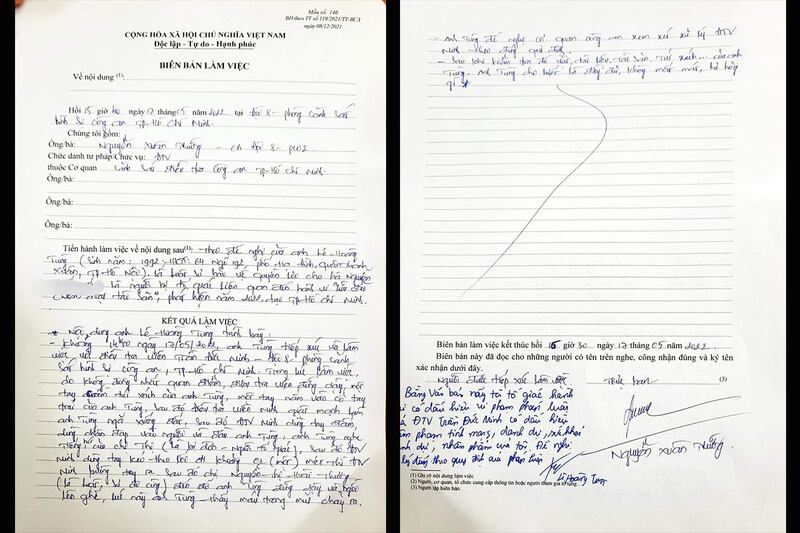 Mẫu số: 146
BH theo TT số 119/2021/TT-BCA
ngày 08/12/2021
CỘNG HÒA XÃ HỘI CHỦ NGHĨA VIỆT NAM
Độc lập - Tự do - Hạnh phúc
BIÊN BẢN LÀM VIỆC
Về nội dung (1):
Hồi 15 giờ 40 ngày 17 tháng 05 năm 2022 tại Đội 8 - phòng cảnh sát
hình sự công an TP. Hồ Chí Minh.
Chúng tôi gồm:
Ông/bà: Nguyễn Xuân Trường - Đội 8 - PC02
Chức danh tư pháp/Chức vụ: ĐTV
thuộc Cơ quan cảnh sát điều tra công an TP. Hồ Chí Minh.
Ông/bà:
Ông/bà:
Ông/bà:
Tiến hành làm việc về nội dung sau(1): Theo đề nghị của anh Lê Hoàng
Tùng (Sinh năm: 1992; HKTT: 64 Ngõ 192, phố Hạ Đình, quận Thanh
Xuân, TP. Hà Nội). Là luật sư bảo vệ quyền lợi cho bà Nguyễn
là người bị tố giác liên quan đến hành vi lừa đảo
chiếm đoạt tài sản, phát hiện năm 2022, tại TP. Hồ Chí Minh.
KẾT QUẢ LÀM VIỆC
* Nội dung anh Lê Hoàng Tùng trình bày:
- Khoảng 14h00 ngày 17/05/2022, anh Tùng tiếp xúc và làm
việc với điều tra viên Trần Đức Minh - Đội 8 phòng cảnh
sát hình sự công an TP. Hồ Chí Minh. Trong lúc làm việc,
do không thống nhất quan điểm, điều tra viên đứng dậy, một
tay túi xách của anh Tùng, một tay nắm vào cổ tay
trái của anh Tùng, sau đó điều tra viên Minh quật mạnh làm
anh Tùng ngã xuống đất, sau đó ĐTV Minh dùng tay đấm,
dùng chân đạp vào người và đầu anh Tùng, anh Tùng nghe
tiếng của chị Thi (là bị đơn - người tố giác), sau đó ĐTV
Minh dùng tay kéo theo lôi đi khoảng 01 (một) mét thì ĐTV
Minh buông tay ra. Sau đó chị Nguyễn Thị Hoài Thương
(là luật sư đi cùng) đến đỡ anh Tùng đứng dậy và ngồi
lên ghế, lúc này anh Tùng thấy máu trong mũi chảy ra.
- Anh Tùng đề nghị cơ quan công an xem xét xử lý ĐTV
Minh theo đúng quy định.
- Sau khi kiểm tra đồ vật, tài liệu, tài sản, túi xách... của anh
Tùng. Anh Tùng cho biết là đầy đủ, không mất mát, hư hỏng
gì. *
Biên bản làm việc kết thúc hồi 16 giờ 30 ngày 17 tháng 05 năm 2022.
Biên bản này đã đọc cho những người có tên trên nghe, công nhận đúng và ký tên
xác nhận dưới đây.
Người được tiếp xúc làm việc
(3)
Bằng văn bản này tôi tố giác hành
vi có dấu hiệu vi phạm pháp luật
ĐTV Trần Đức Minh có dấu hiệu
phạm tính mạng, danh dự, sức khỏe
nhân phẩm của tôi. Đề nghị
xử đúng theo quy định của pháp luật
Lê Hoàng Tùng
Nguyễn Xuân Trường
(1) Ghi rõ nội dung làm việc
(2) Người, cơ quan, tổ chức cung cấp thông tin hoặc người tham gia tố tụng.
(3) Người lập biên bản.